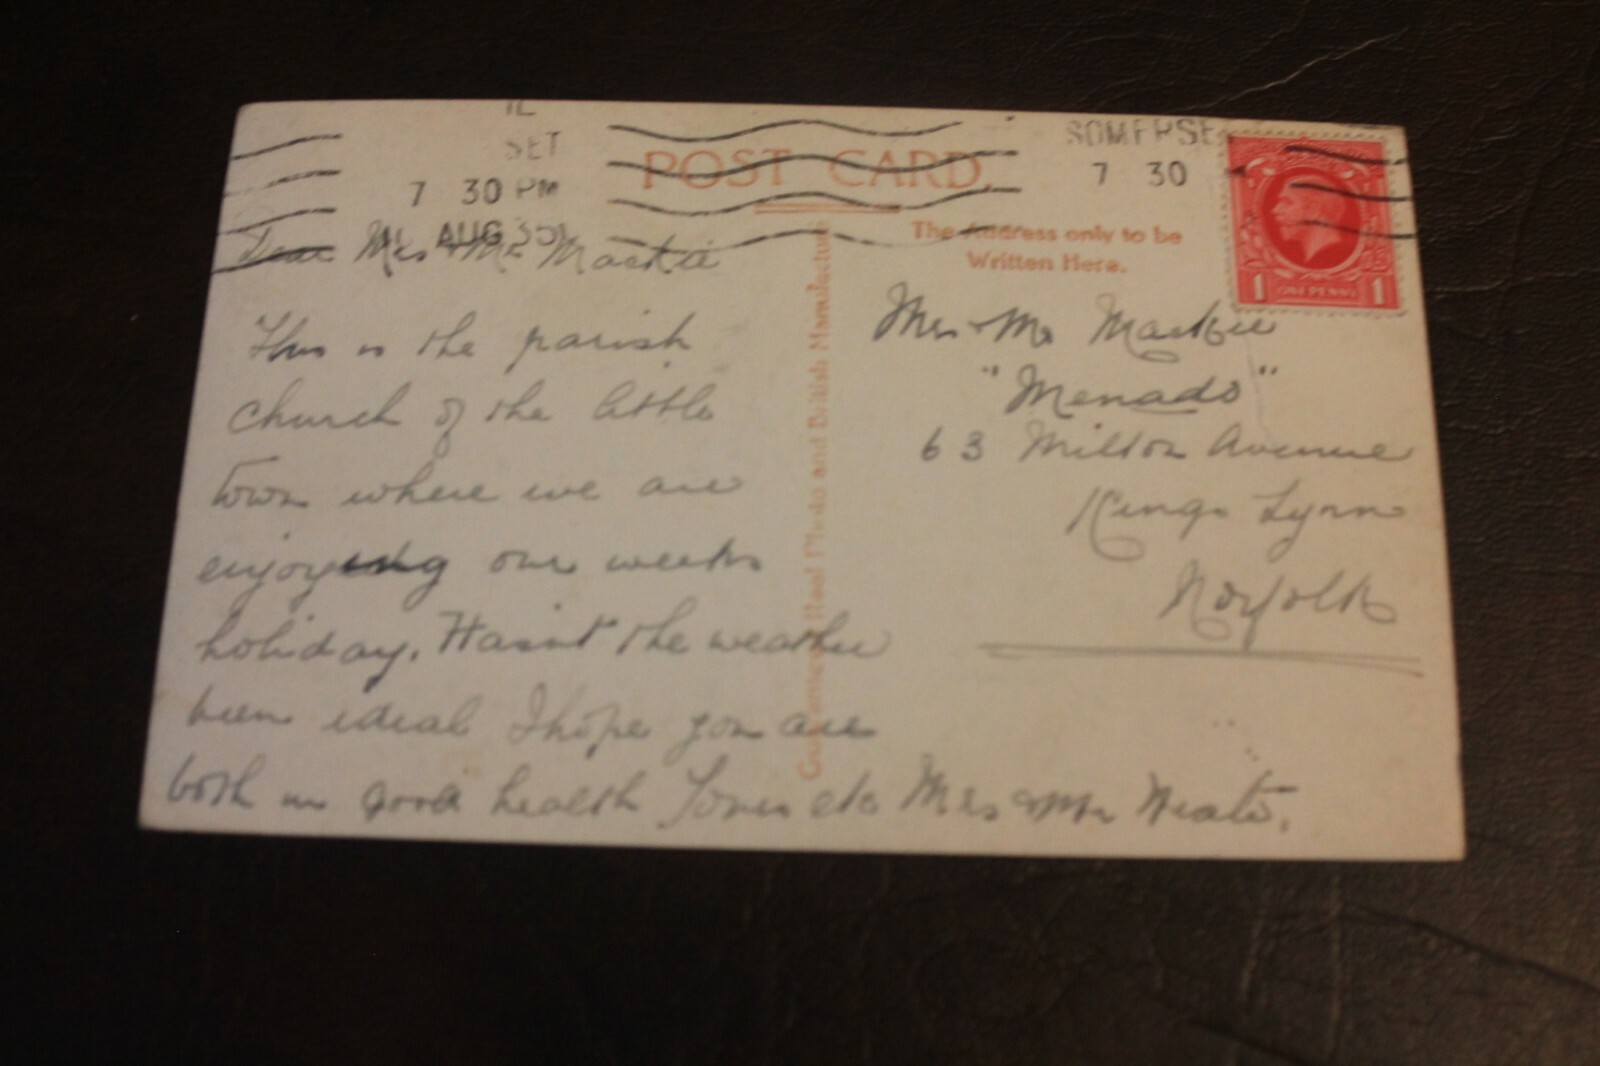 SET
7 30 PM
AUG 35
SOMERSE
7 30
POST CARD.
The Address only to be
Written Here.
ONE PENNY
1 1
Dear Mrs & Mr Mackie
This is the parish
church of the little
town where we are
enjoying our weeks
holiday. Hasnt the weather
been ideal I hope you are
both in good health Yours etc Mrs & Mr
Real Photo and British Manufacture
Mrs & Mr Mackie
"Menado"
63 Milton Avenue
Kings Lynn
Norfolk